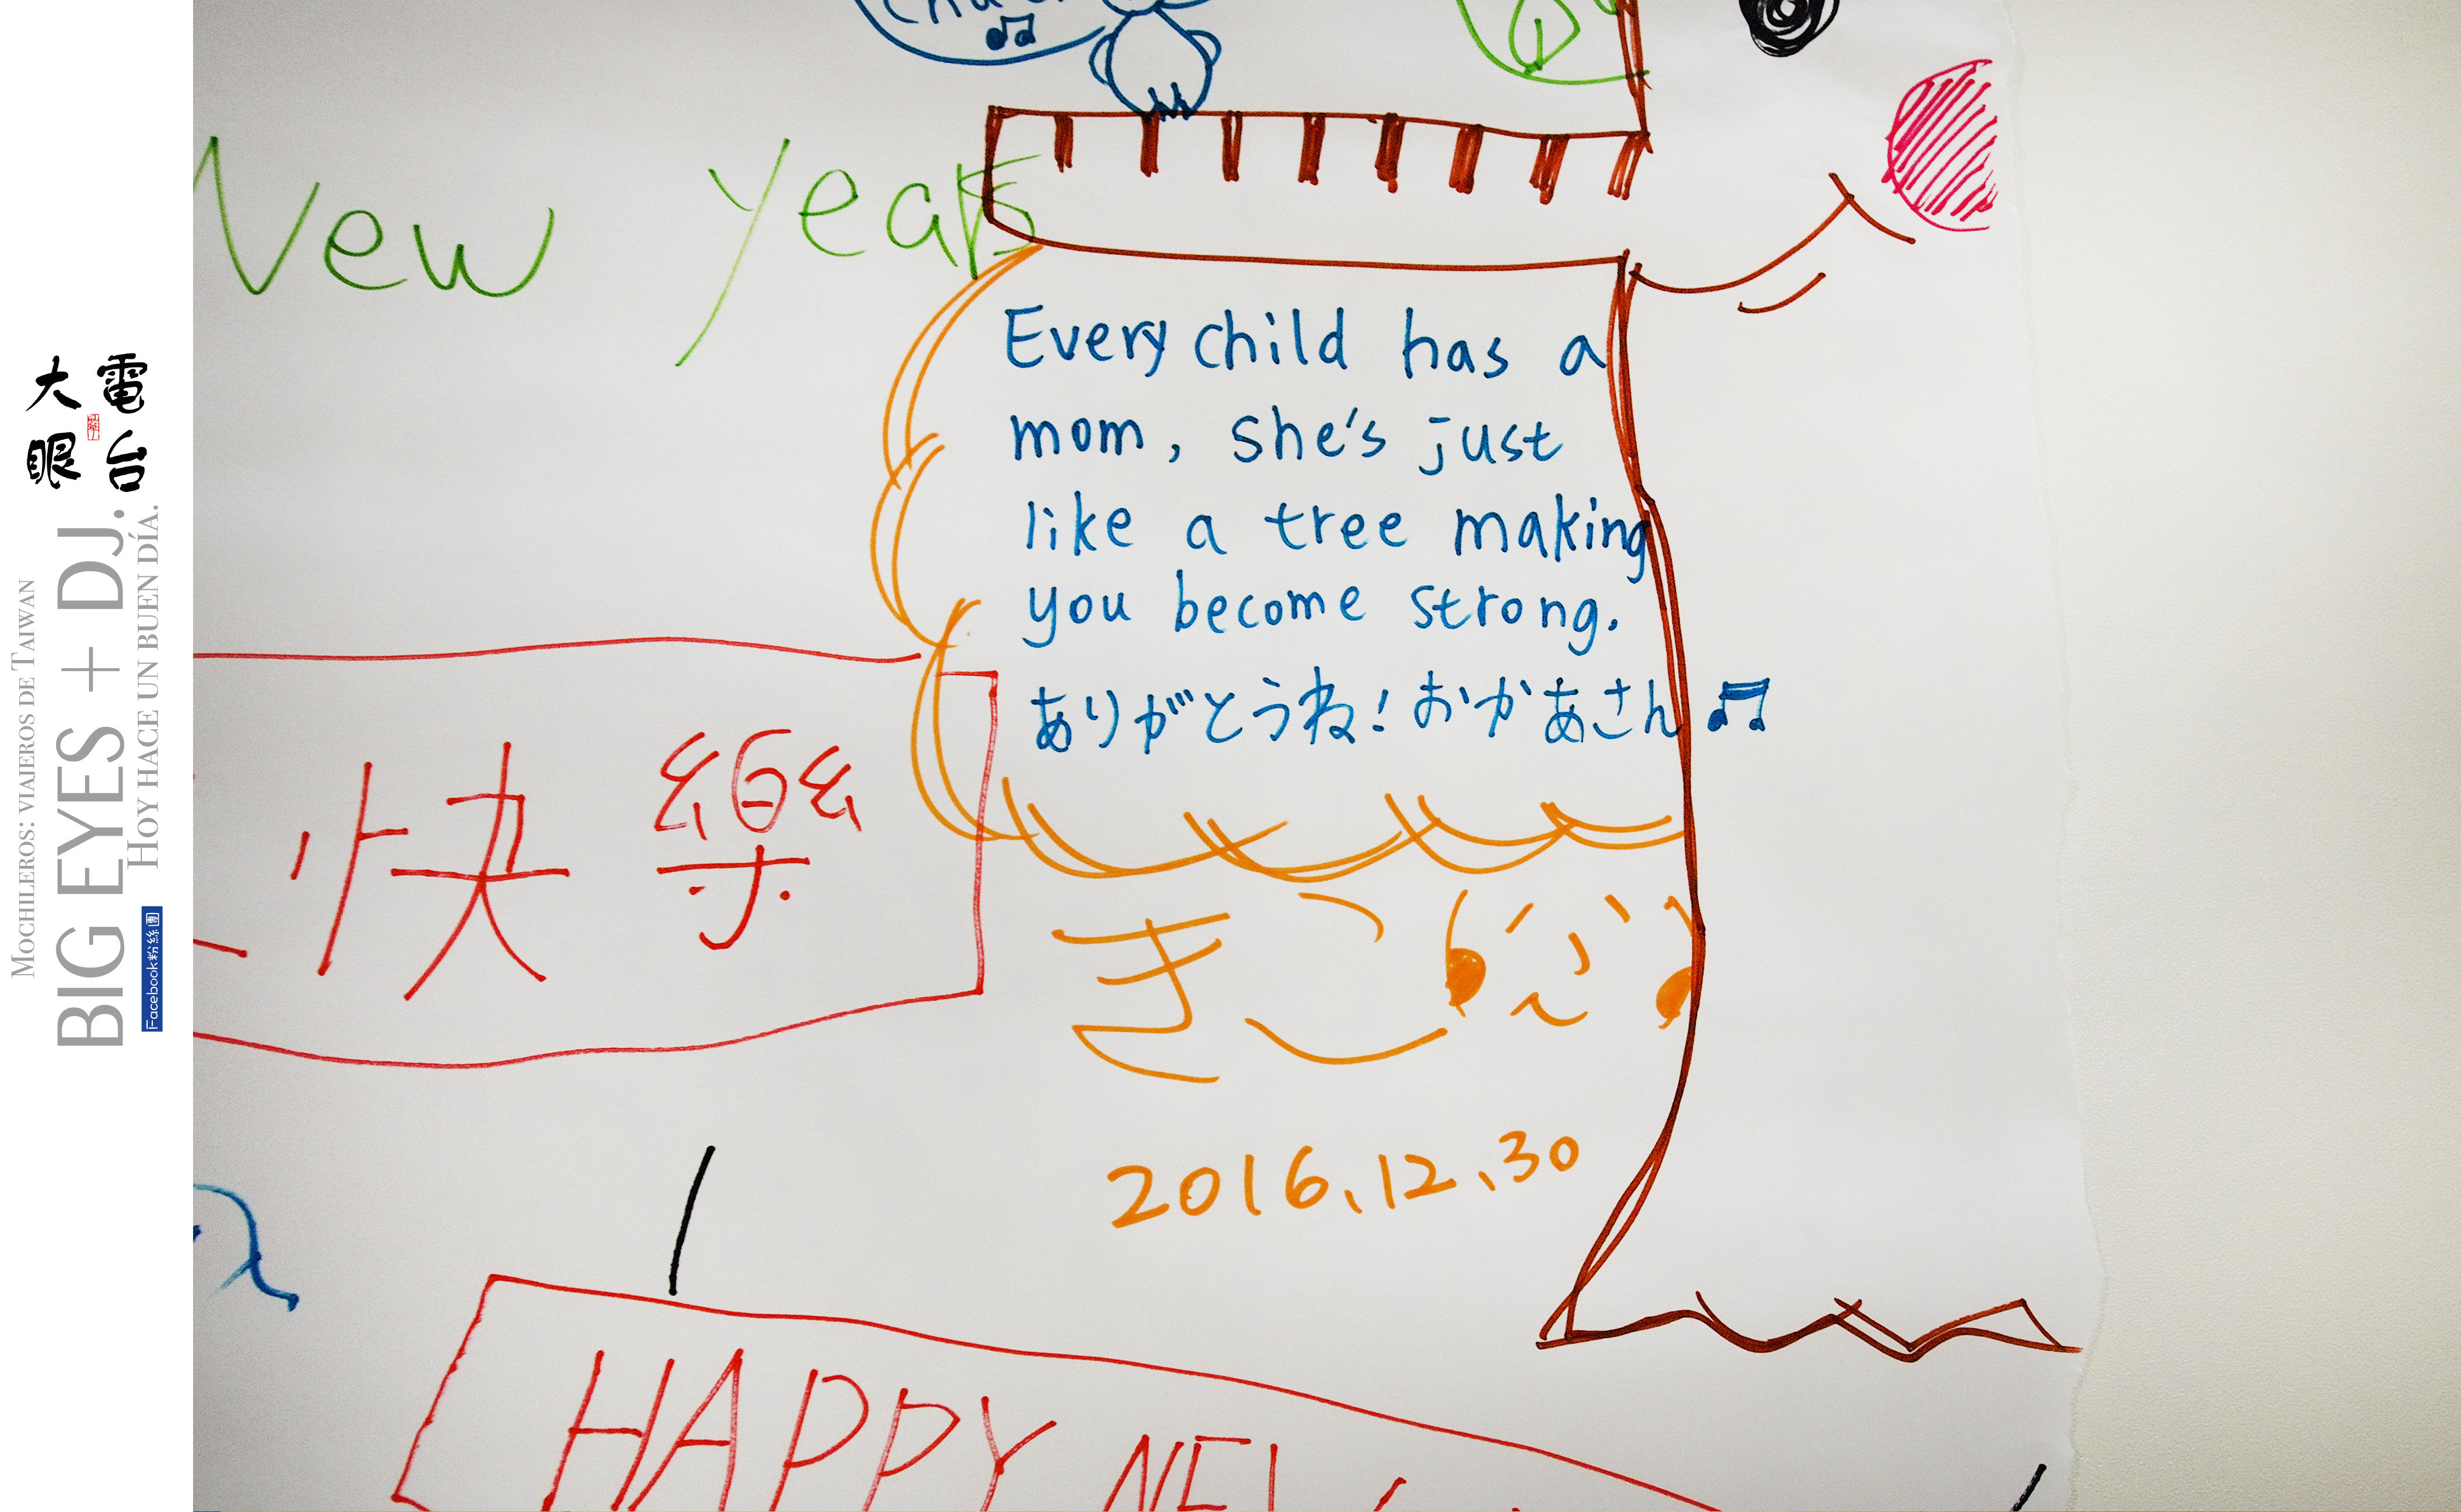 New years
Every child has a
mom, she's just
like a tree making
you become strong.
ありがとうね! おかあさん♫
快樂
2016、12、30
HAPPY NEW
大電
眼台
MOCHILEROS: VIAJEROS DE TAIWAN
BIG EYES + DJ.
HOY HACE UN BUEN DÍA.
Facebook粉絲團